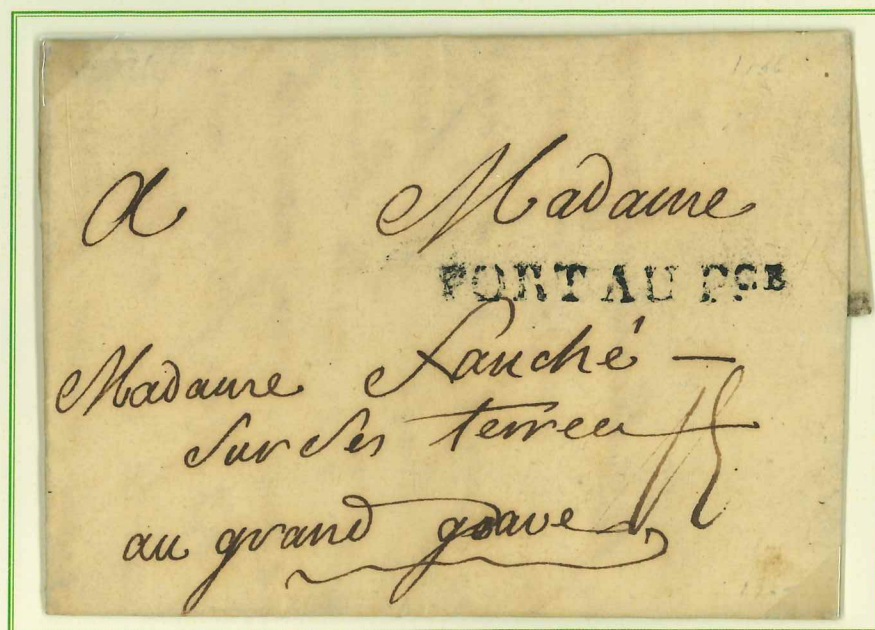 a Madame
PORT AU PCE
Madame Fauché —
Sur Ses terres
au grand goave
15